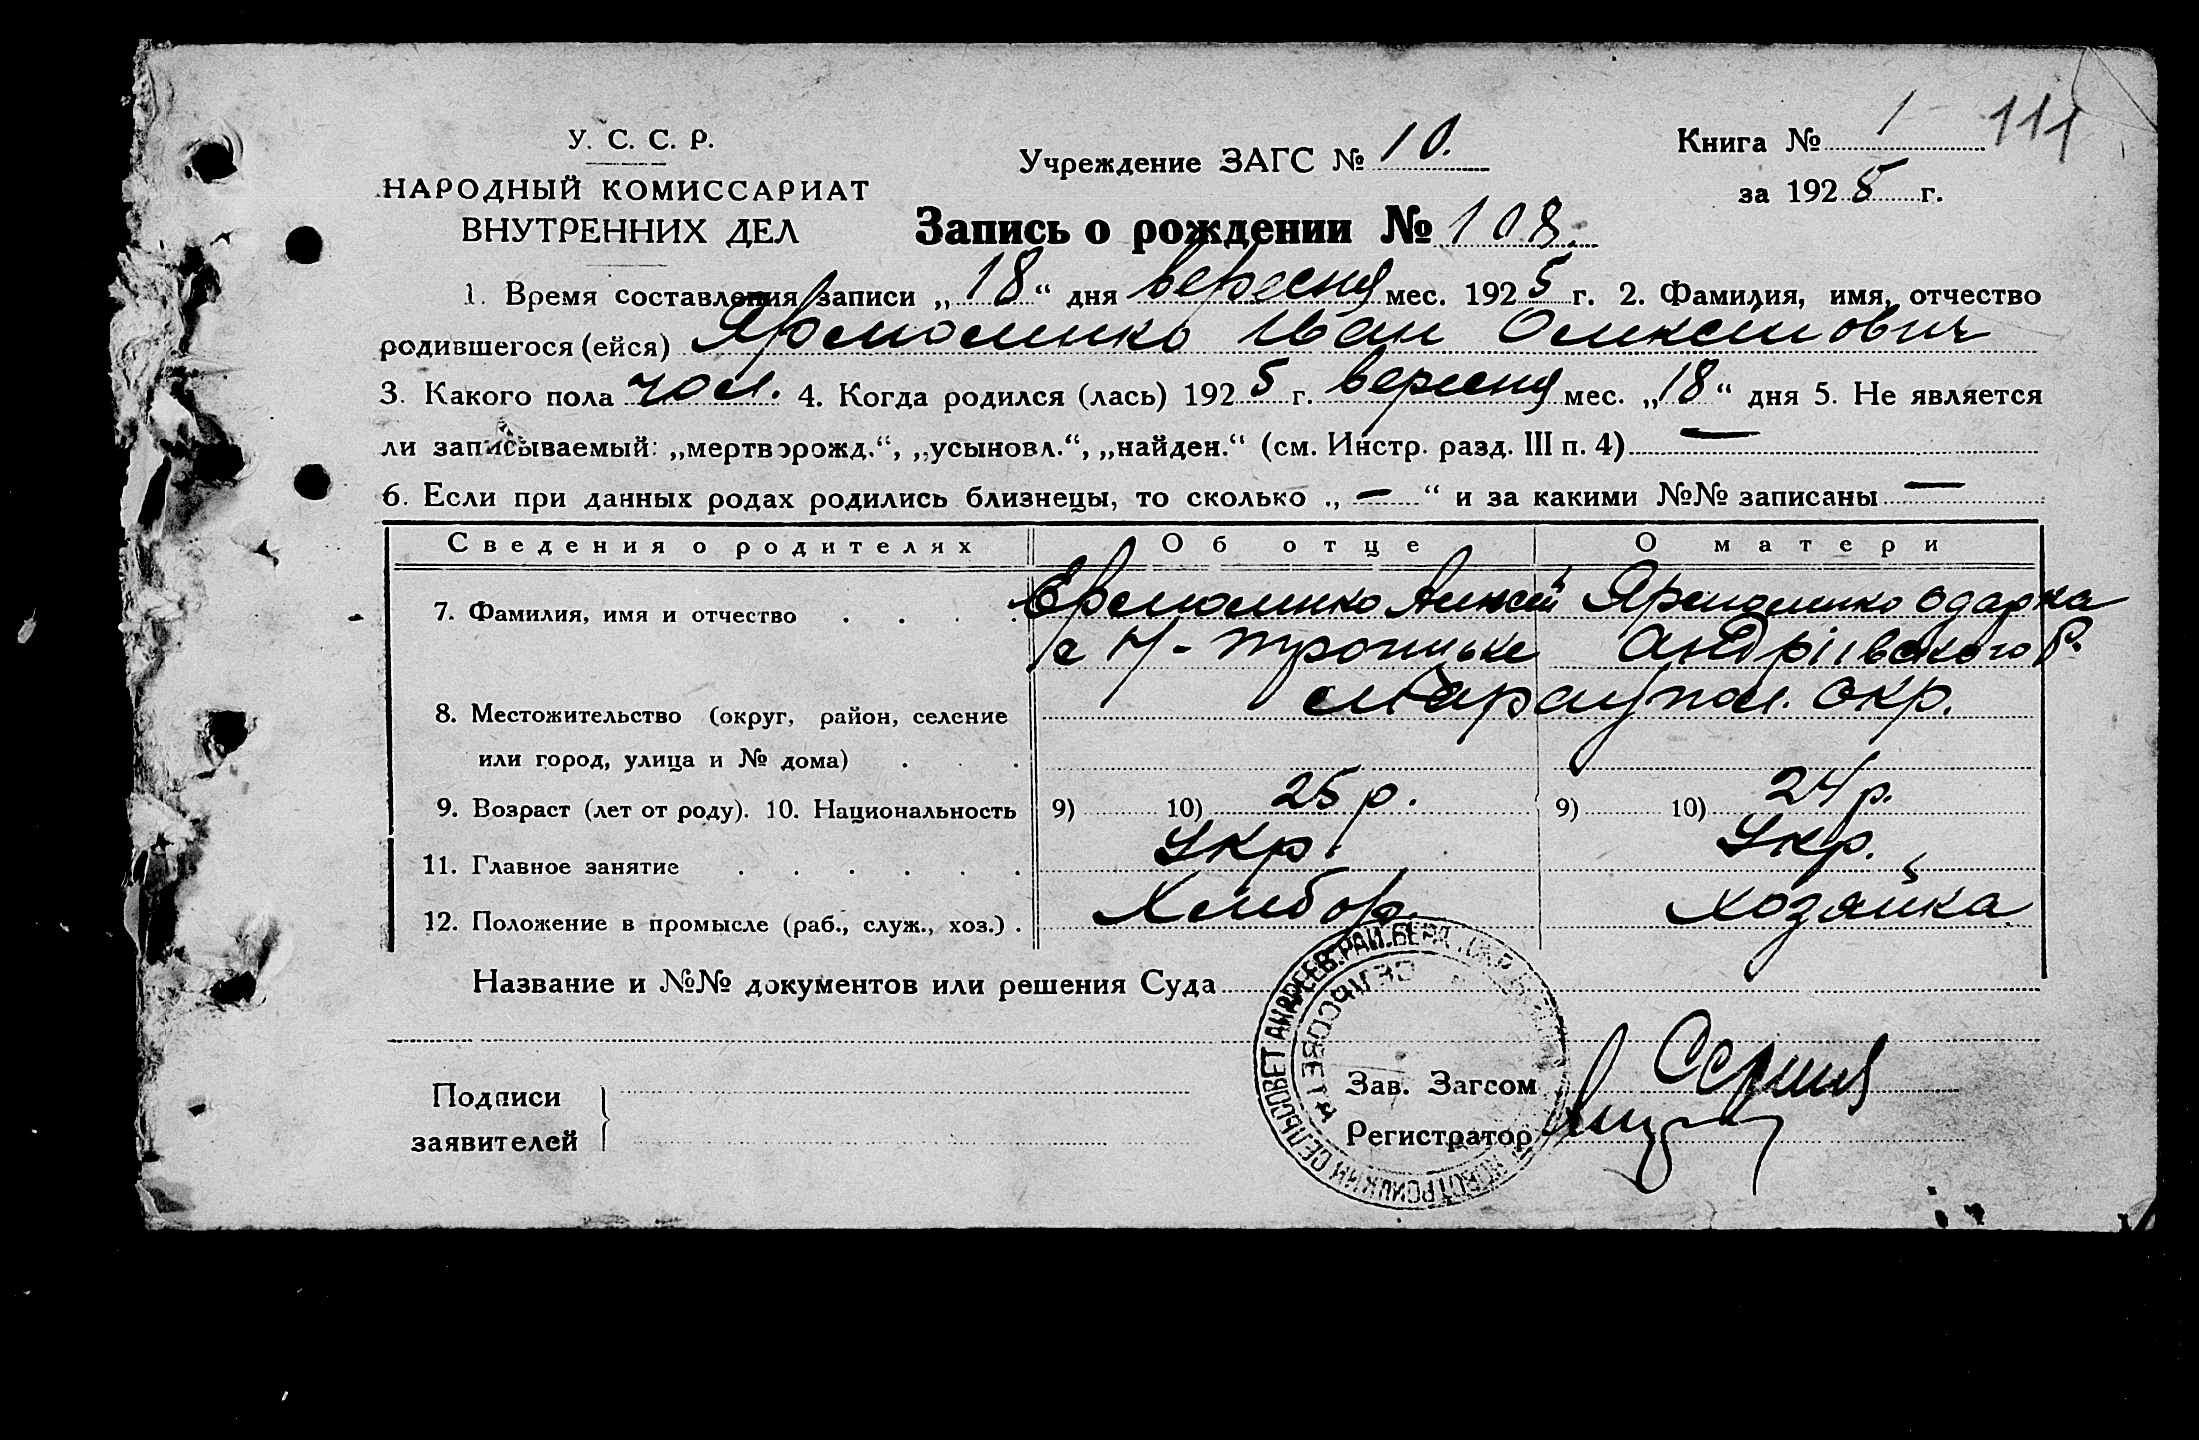 У. С. С. Р.
НАРОДНЫЙ КОМИССАРИАТ
ВНУТРЕННИХ ДЕЛ
Учреждение ЗАГС № 10.
Книга № 1 111
за 1925 г.
Запись о рождении № 108.
1. Время составления записи „18“ дня вересня мес. 1925 г. 2. Фамилия, имя, отчество
родившегося (ейся) Ярмоленко Іван Олексійович
3. Какого пола чол. 4. Когда родился (лась) 1925 г. вересня мес. „18“ дня 5. Не является
ли записываемый: „мертворожд.“, „усыновл.“, „найден.“ (см. Инстр. разд. III п. 4) —
6. Если при данных родах родились близнецы, то сколько „—“ и за какими №№ записаны —
Сведения о родителях Об отце О матери
7. Фамилия, имя и отчество Ермоленко Алексей Яремоленко Одарка
с Н-Троицьке Андріівского р.
8. Местожительство (округ, район, селение Мариупол. окр.
или город, улица и № дома)
9. Возраст (лет от роду). 10. Национальность 9) 10) 25 р. 9) 10) 24 р.
11. Главное занятие Укр. Укр.
12. Положение в промысле (раб., служ., хоз.) Хлибор. хозяйка
Название и №№ документов или решения Суда
Подписи
заявителей
Зав. Загсом
Регистратор
НОВОТРОИЦКИЙ СЕЛЬСОВЕТ АНДРЕЕВ. РАЙ. БЕРД. ОКР.